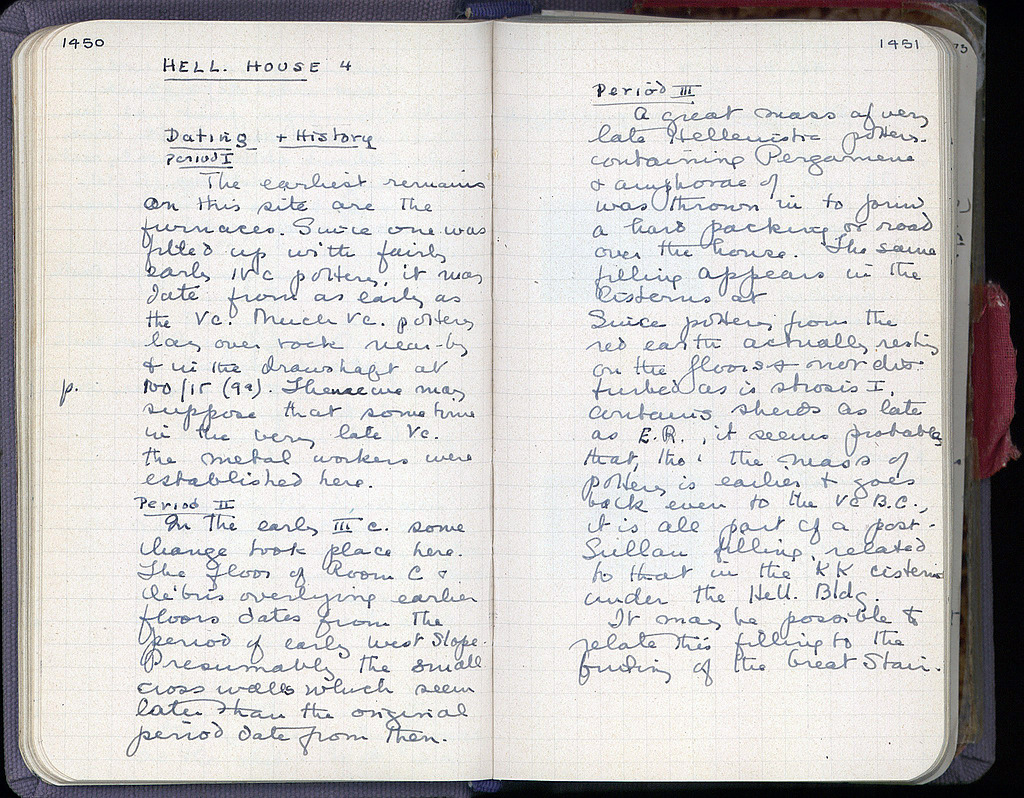 1450
HELL. HOUSE 4
Dating + History
Period I
The earliest remains
on this site are the
furnaces. Since one was
filled up with fairly
early IV c pottery, it may
date from as early as
the Vc. Much Vc. pottery
lay over rock near-by
& in the drawshaft at
p. 100/15 (99). Thence we may
suppose that sometime
in the very late Vc.
the metal workers were
established here.
Period II
In the early III c. some
change took place here.
The floor of Room C &
debris overlying earlier
floors dates from the
period of early West Slope.
Presumably the small
cross walls which seem
later than the original
period date from then.
1451
Period III
A great mass of very
late Hellenistic pottery
containing Pergamene
& amphorae of
was thrown in to form
a hard packing or road
over the house. The same
filling appears in the
Cisterns at
Since pottery from the
red earth actually resting
on the floors & not dis-
turbed as is strosis I,
contains sherds as late
as E.R., it seems probable
that, tho' the mass of
pottery is earlier & goes
back even to the Vc B.C.,
it is all part of a post-
Sullan filling, related
to that in the KK cisterns
under the Hell. Bldg.
It may be possible to
relate this filling to the
building of the Great Stair.